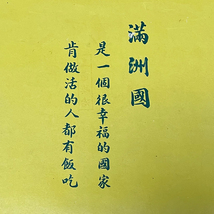 滿洲國
是一個很幸福的國家
肯做活的人都有飯吃